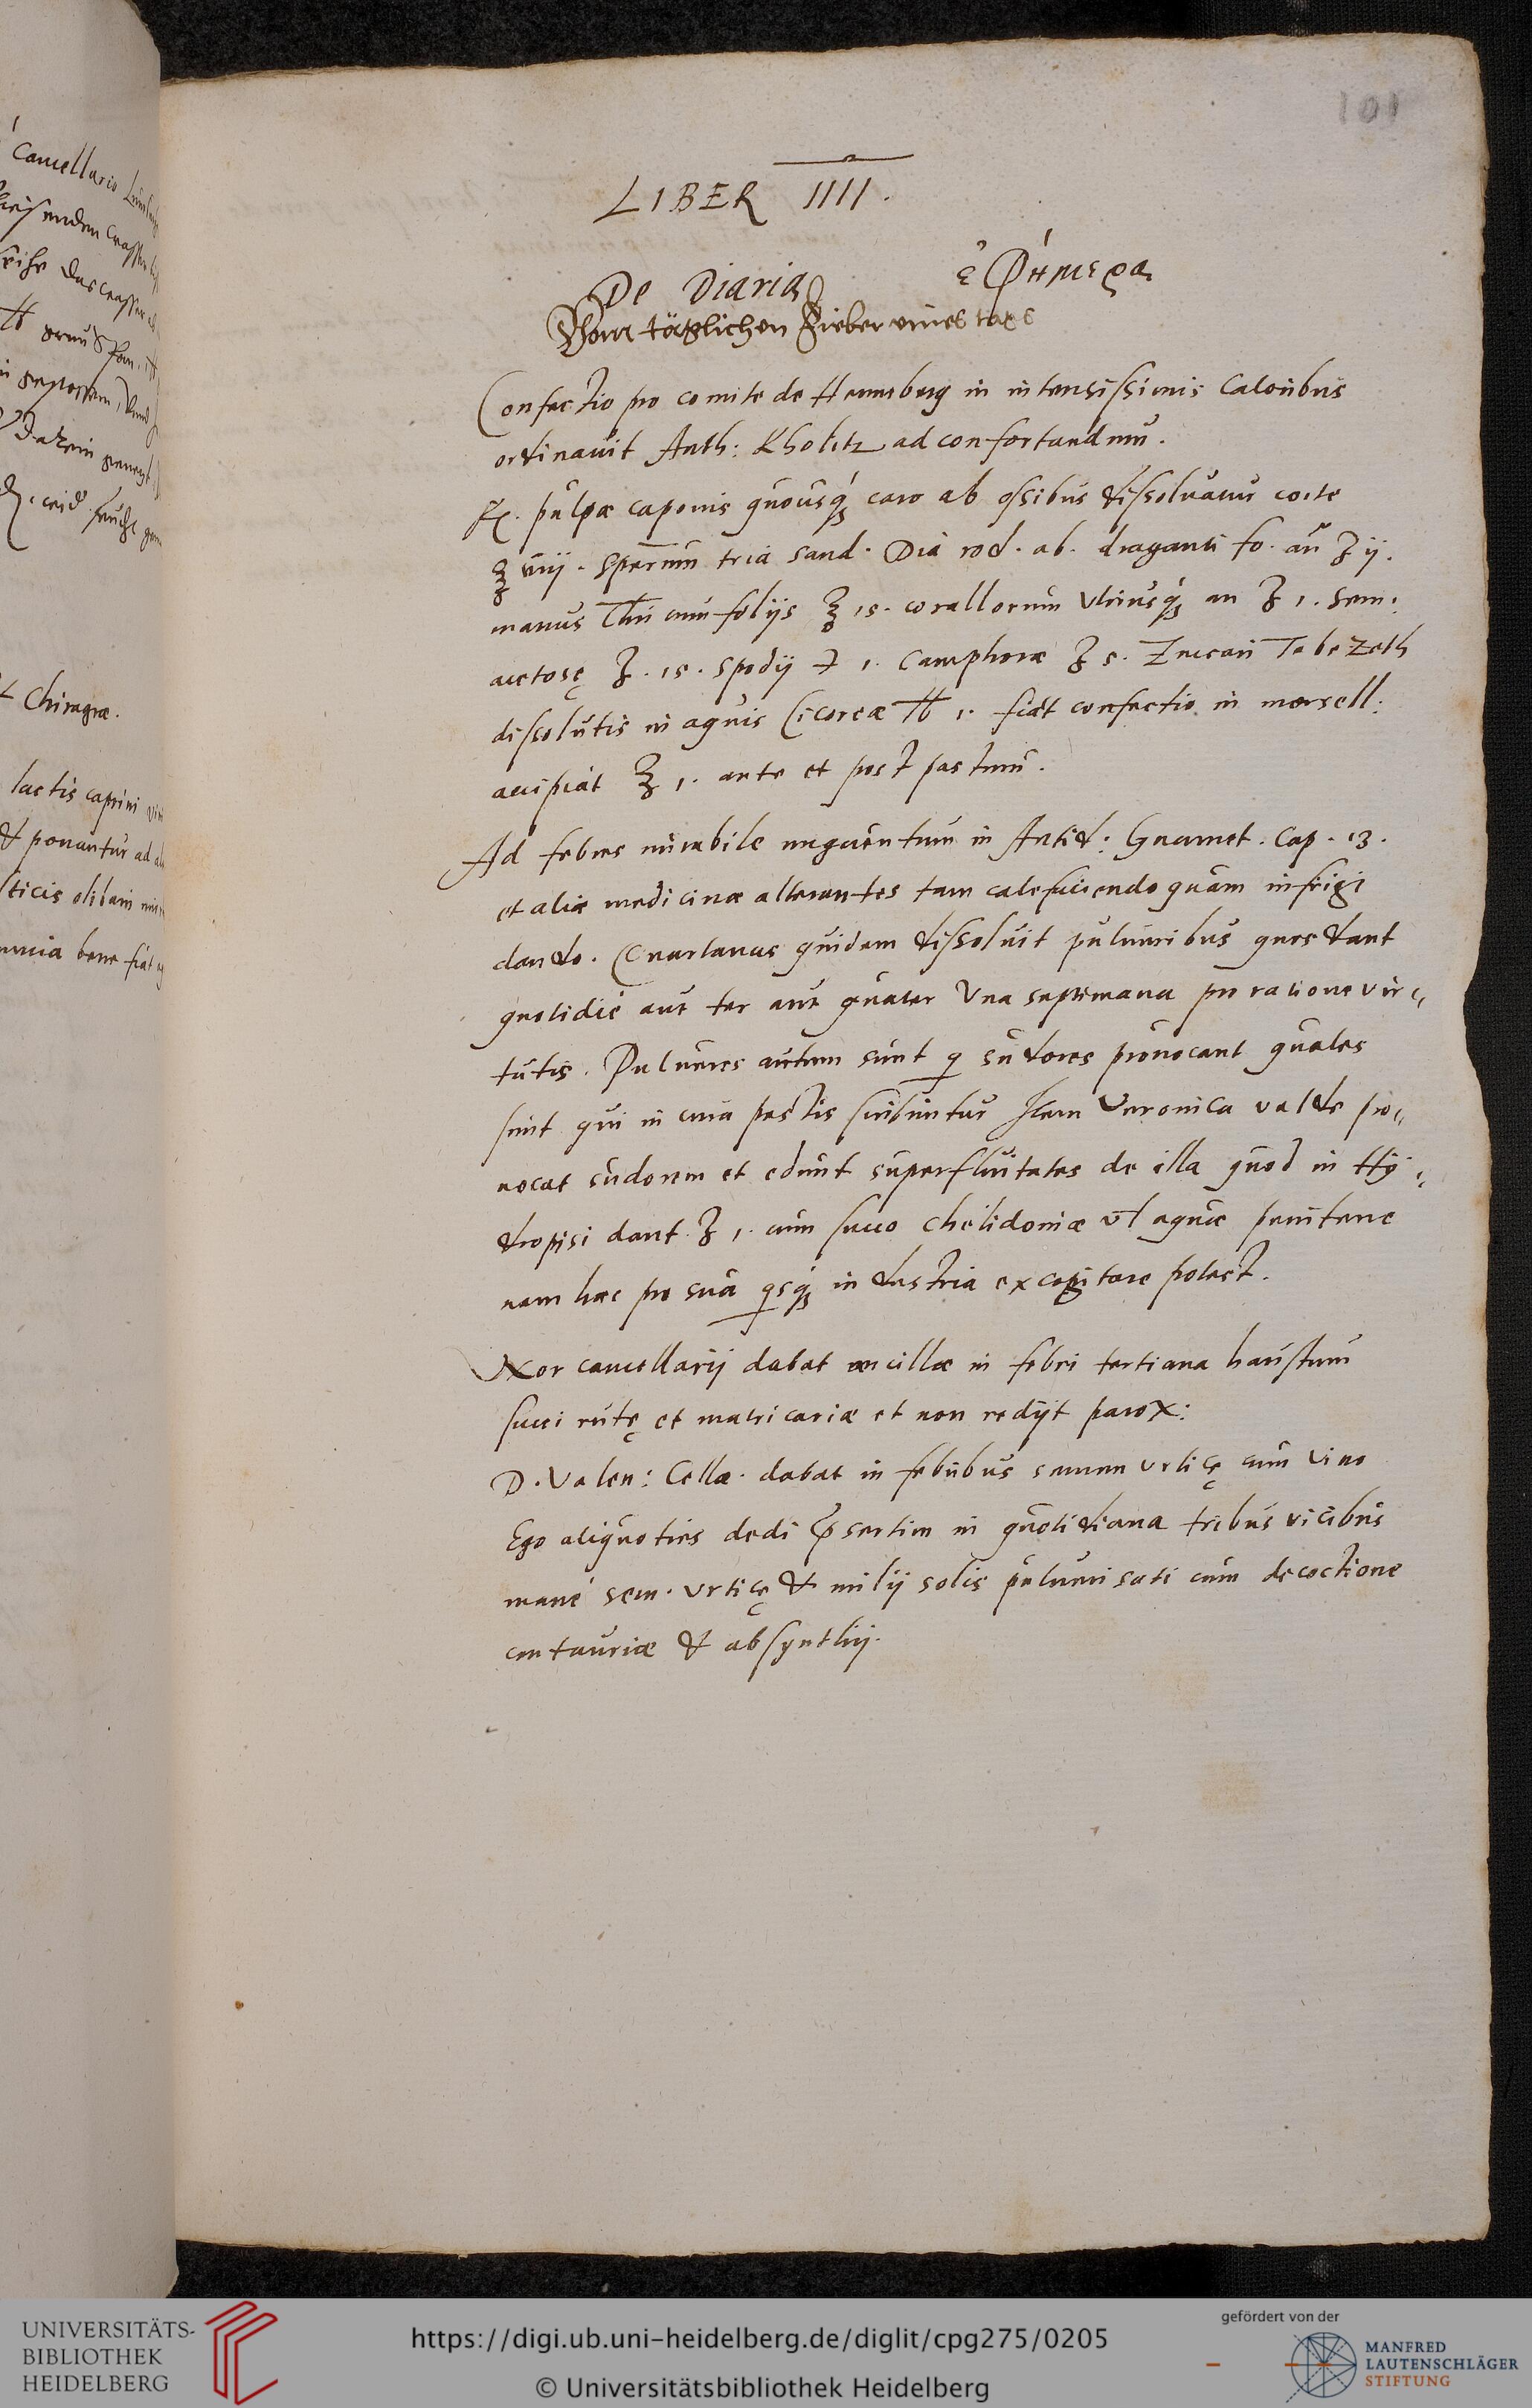 101
LIBER IIII.
De Diaria ἐφήμερα
Vom täglichen Fieber eines tags
Confectio pro comite de Hennberg in intensissimis Caloribus
ordinauit Anth: Kholitz ad confortandum.
℞. pulpæ caponis quousq́ꝫ caro ab ossibus dissoluatur cocte
℥ viij. specierum tria sand. Dia rod. ab. draganti fo. an ʒ ij.
manus Chri cum folijs ℥ 1s. corallorum vtriusq́ꝫ an ʒ 1. Sem:
acetosę ʒ. 1s. spodij ℈ 1. Camphoræ ʒ s. Zuccari Tabezeth
dissolutis in aquis Cicoreæ ℔ 1. fiat confectio in morsell:
accipiat ℥ 1. ante et post pastum.
Ad febres mirabile unguentum in Antid: Gnamet. Cap. 13.
et aliæ medicinæ alterantes tam calefaciendo quam infrigi
dando. Quartanas quidem dissoluit pulueribus quos dant
quotidie aut ter aut quater Vna septimana pro ratione vir⸗
tutis. Pulueres autem sunt q sudores prouocant quales
sunt qui in cura pestis scribuntur Item Veronica valde pro⸗
uocat sudorem et edunt superfluitates de illa quod in Hÿ⸗
dropisi dant ʒ 1. cum succo chelidoniæ vl aquæ
nam hæc pro sua qsq́ꝫ industria excogitare potest.
Vxor cancellarij dabat ancillæ in febri tertiana haustum
succi rutę et matricariæ et non redijt parox:
D. Valen: Cellæ. dabat in febribus semen vrticę cum vino
Ego aliquoties dedi p̄sertim in quotidiana tribus vicibus
mane sem. vrticę & milij solis puluerisati cum decoctione
centauriæ & absynthij.
Cancellario
das
lactis caprini
& ponantur ad
olibani
omnia bene fiat
Chiragræ.
UNIVERSITÄTS-
BIBLIOTHEK
HEIDELBERG
https://digi.ub.uni-heidelberg.de/diglit/cpg275/0205
© Universitätsbibliothek Heidelberg
gefördert von der
MANFRED
LAUTENSCHLÄGER
STIFTUNG